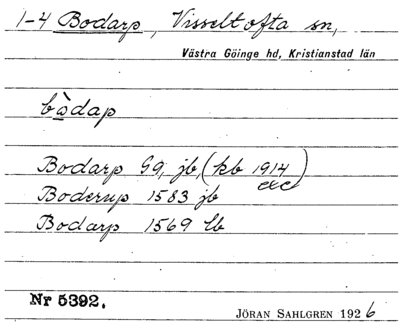 1-4 Bodarp, Visseltofta sn,
Västra Göinge hd, Kristianstad län
bòdap
Bodarp G9, jb, (kb 1914)
exc
Boderup 1583 jb
Bodarp 1569 lb
Nr 5392.
JÖRAN SAHLGREN 1926